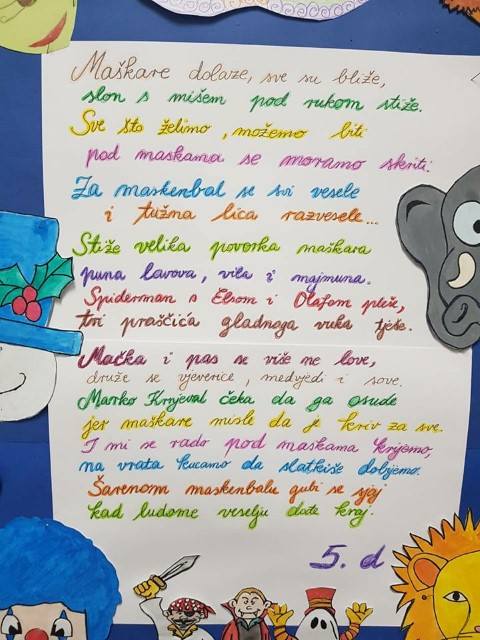 Maškare dolaze, sve su bliže,
slon s mišem pod rukom stiže.
Sve što želimo, možemo biti
pod maskama se moramo skriti.
Za maskenbal se svi vesele
i tužna lica razvesele...
Stiže velika povorka maškara
puna lavova, vila i majmuna.
Spiderman s Elsom i Olafom pleše,
tri praščića gladnoga vuka tješe.
Mačka i pas se više ne love,
druže se vjeverice, medvjedi i sove.
Marko Krnjeval čeka da ga osude
jer maškare misle da je kriv za sve.
I mi se rado pod maskama krijemo,
na vrata kucamo da slatkiše dobijemo.
Šarenom maskenbalu gubi se sjaj
kad ludome veselju dođe kraj.
5. d